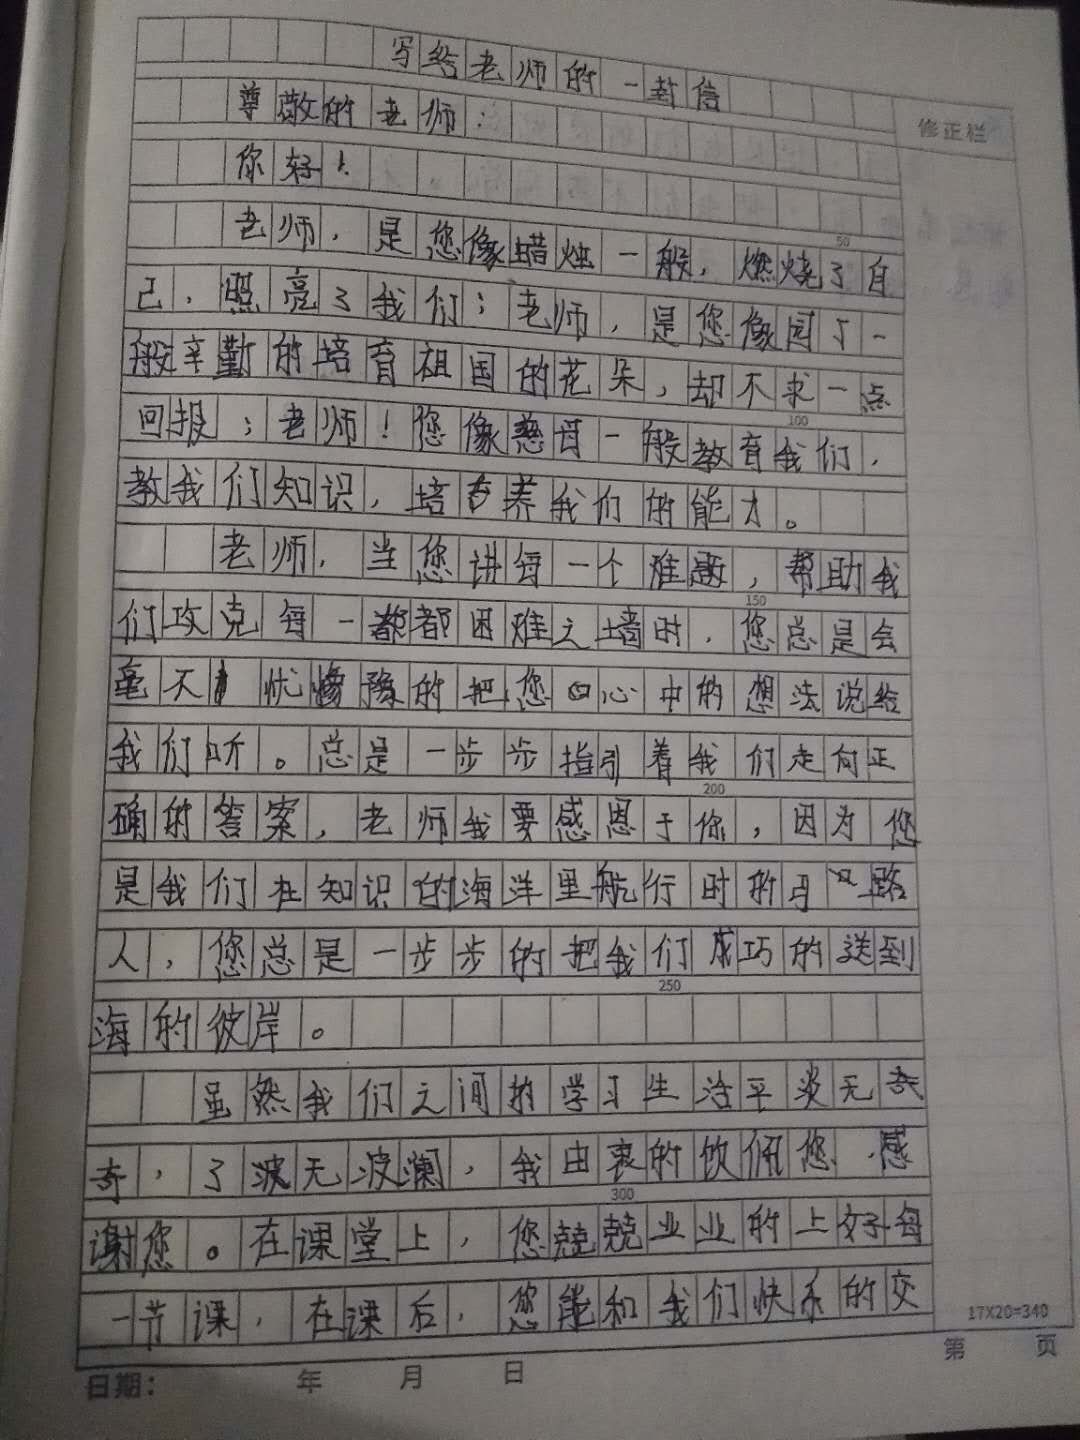 写给老师的一封信
修正栏
尊敬的老师：
你好！
老师，是您像蜡烛一般，燃烧了自
50
己，照亮了我们；老师，是您像园丁一
般辛勤的培育祖国的花朵，却不求一点
100
回报；老师！您像慈母一般教育我们，
教我们知识，培养我们的能才。
老师，当您讲每一个难题，帮助我
150
们攻克每一都都困难之墙时，您总是会
毫不忧豫的把您心中的想法说给
我们听。总是一步步指引着我们走向正
200
确的答案，老师我要感恩于你，因为您
是我们在知识的海洋里航行时的引路
人，您总是一步步的把我们成巧的送到
250
海的彼岸。
虽然我们之间的学习生活平淡无奇
奇，了波无波澜，我由衷的饮佩您，感
300
谢您。在课堂上，您兢兢业业的上好每
一节课，在课后，您能和我们快乐的交
17X20=340
日期： 年 月 日 第 页